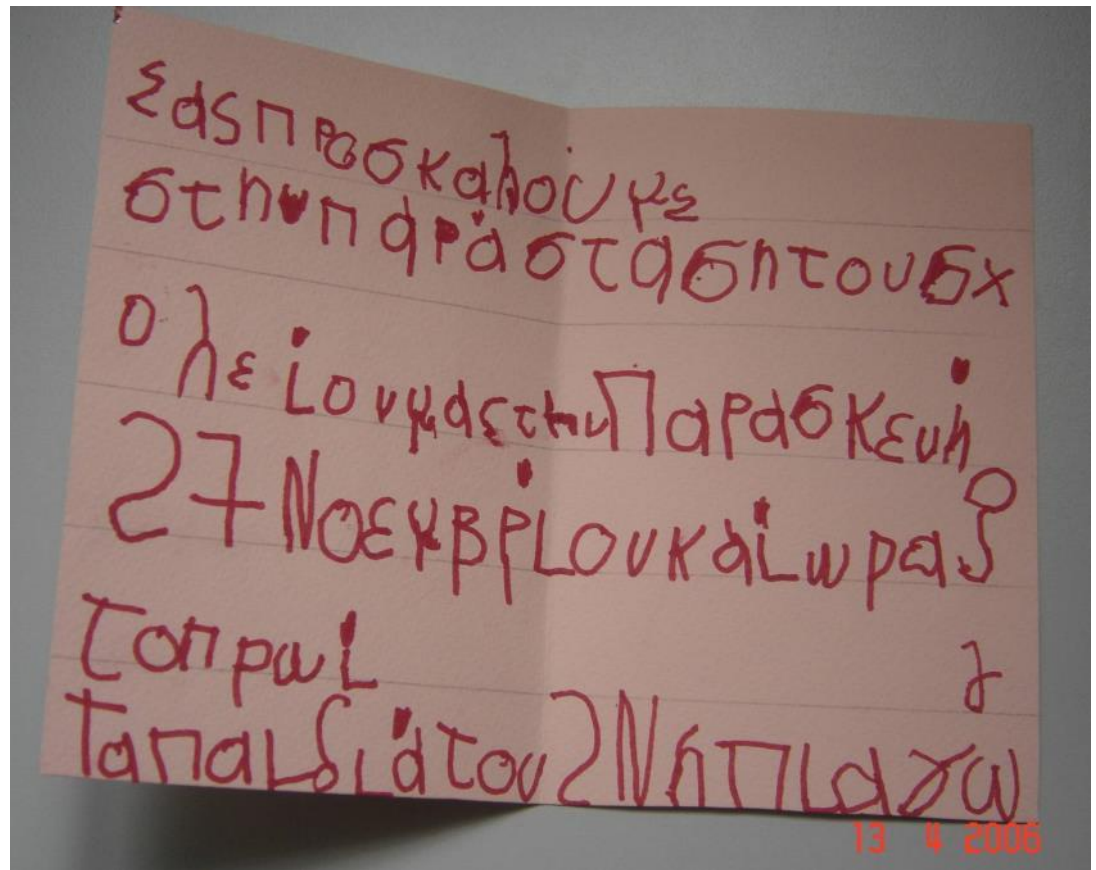 Σας προσκαλούμε
στην παράσταση του σχ
ολείου μας την Παρασκευή
27 Νοεμβρίου και ώρα 9
το πρωί
Τα παιδιά του 2 Νηπιαγω
γ
13 4 2006